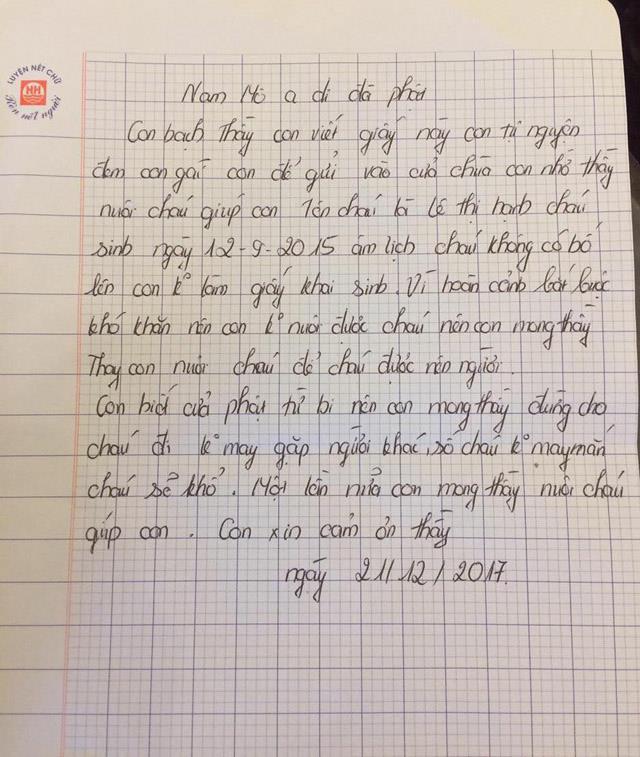 LUYỆN NẾT CHỮ
HH
Rèn nết người
Nam Mô a di đà phật
Con bạch Thầy con viết giấy này con tự nguyện
đem con gái con để gửi vào cửa chùa con nhờ thầy
nuôi cháu giúp con Tên cháu là Lê thị hạnh cháu
sinh ngày 12-9-2015 âm lịch cháu không có bố
lên con k° làm giấy khai sinh. Vì hoàn cảnh bắt buộc
khó khăn nên con k° nuôi được cháu nên con mong thầy
Thay con nuôi cháu để cháu được nên người.
Con biết cửa phật từ bi nên con mong thầy đừng cho
cháu đi k° may gặp người khác, số cháu k° may mắn
cháu sẽ khổ. Một lần nữa con mong thầy nuôi cháu
giúp con. Con xin cảm ơn thầy
ngày 21/12/2017.